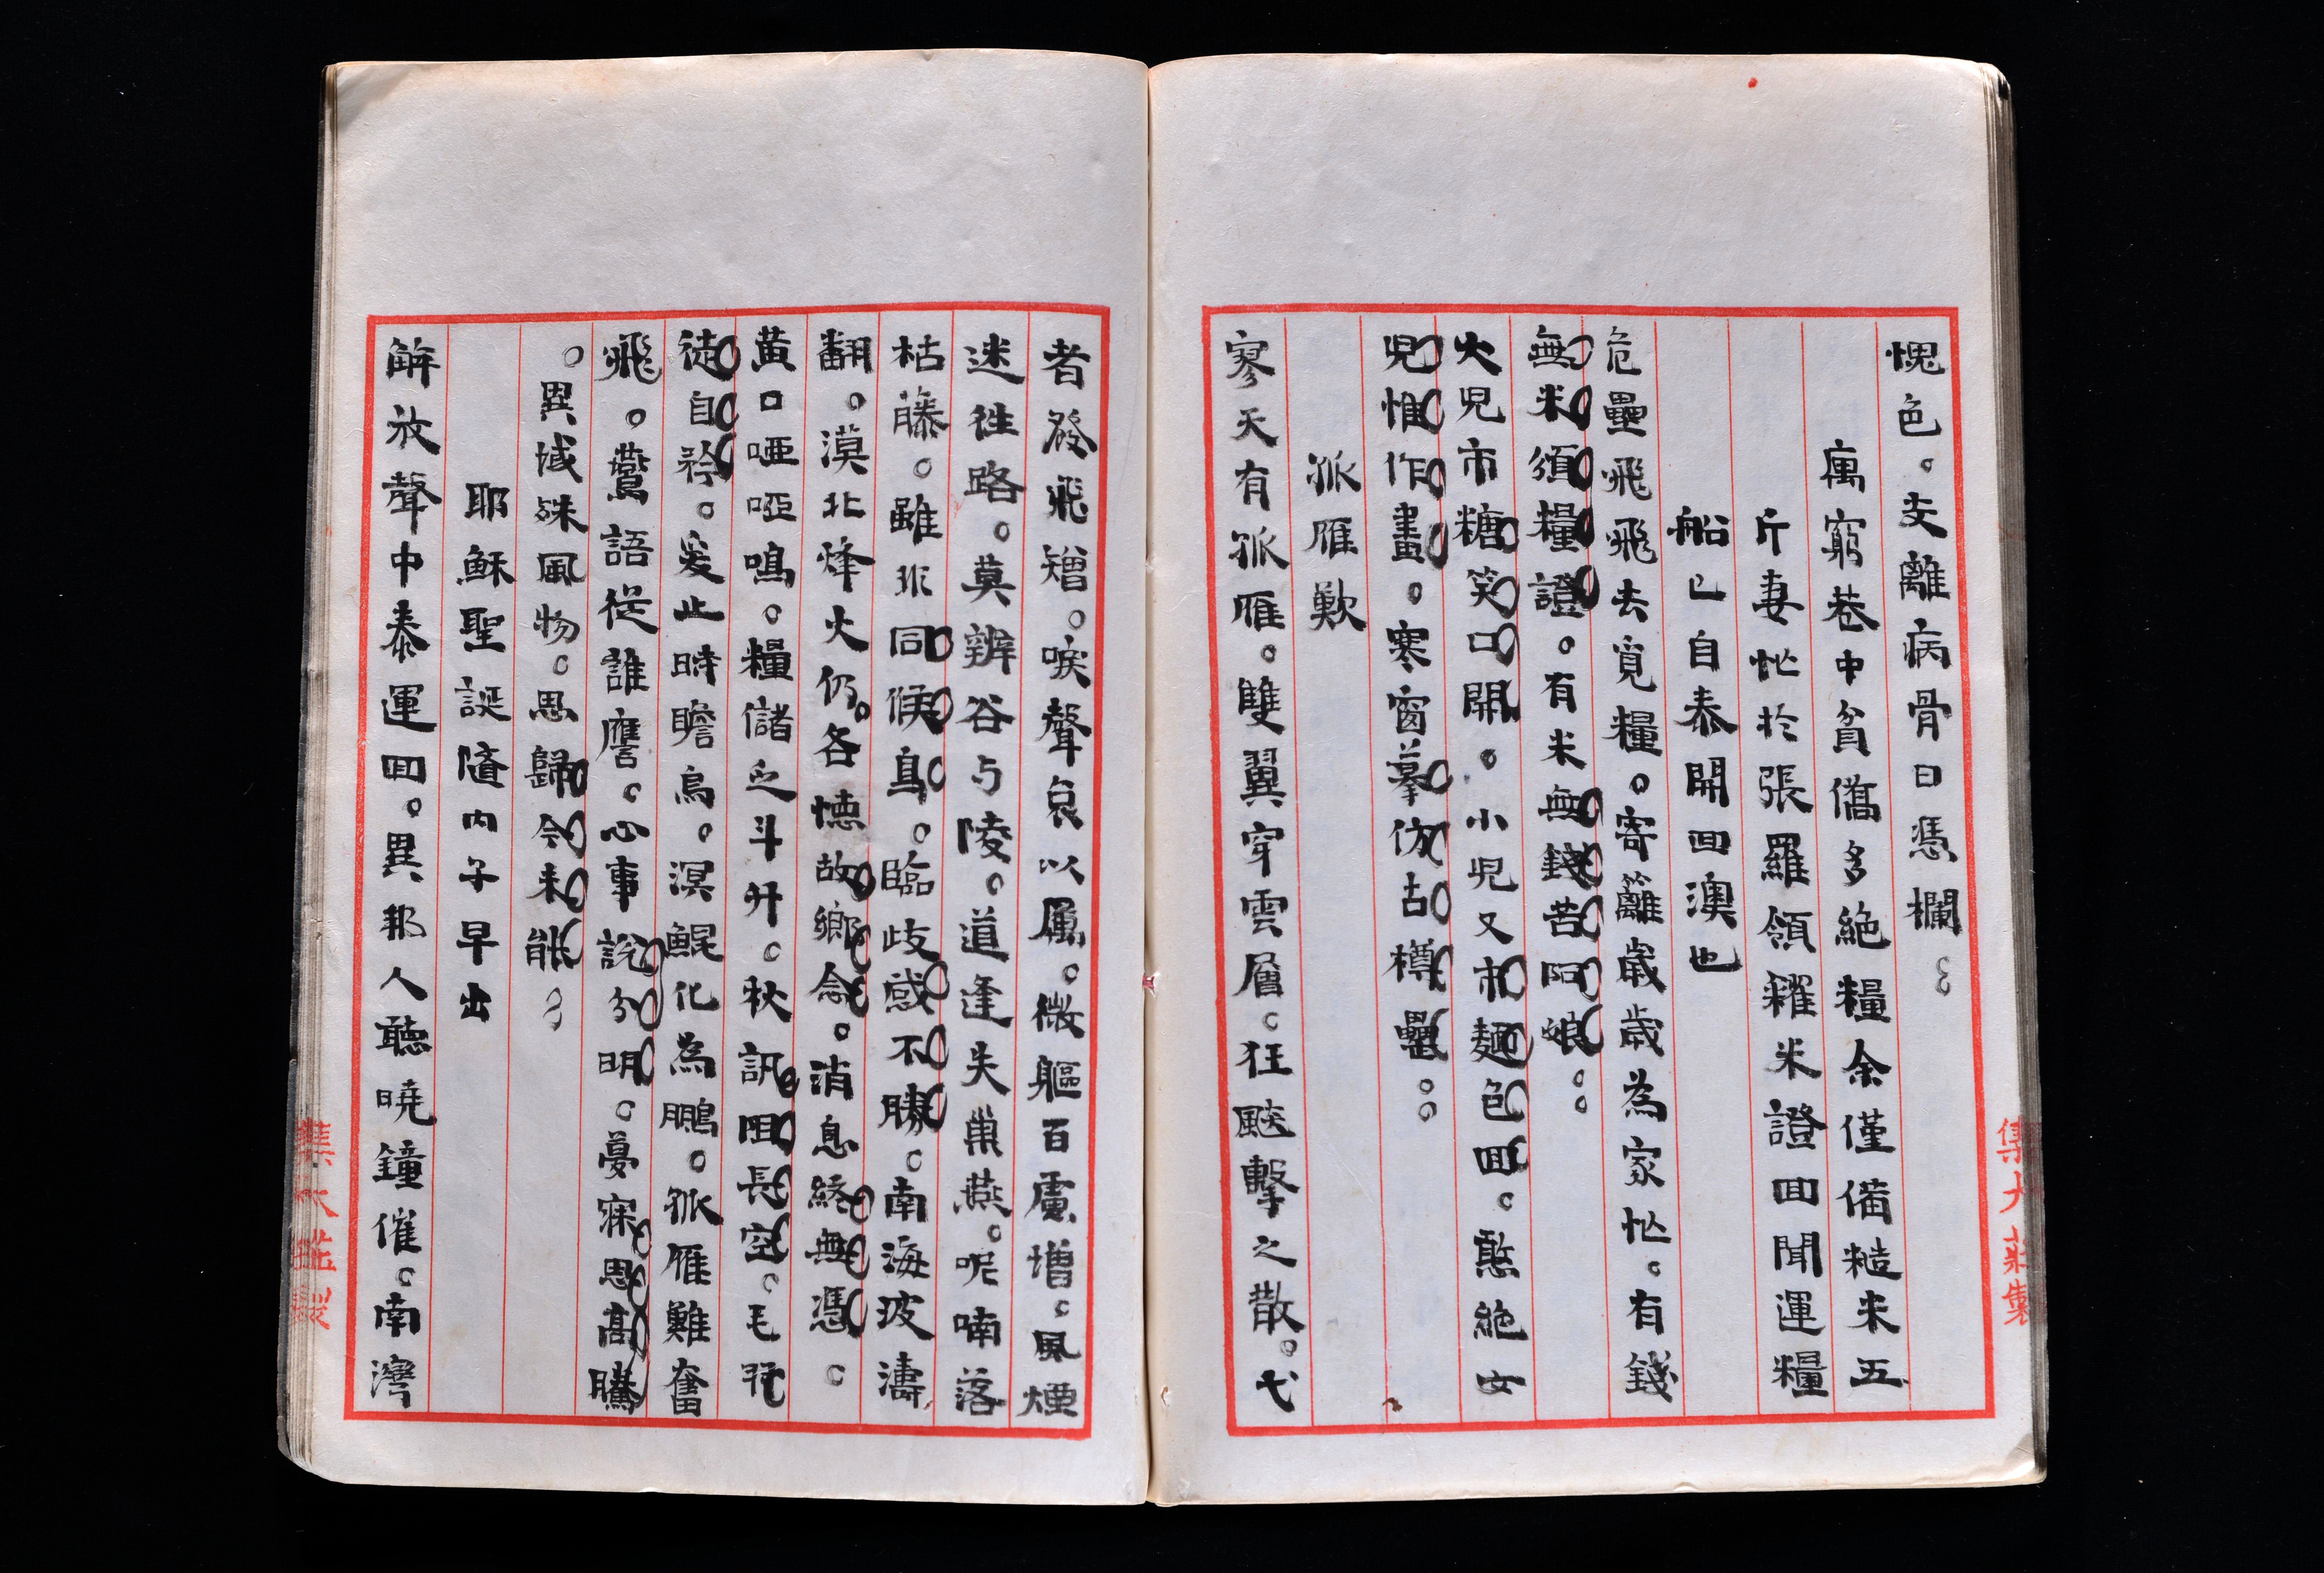 愧色。支離病骨日憑欄。
寓窮巷中貧僑多絕糧余僅備糙米五
斤妻忙於張羅領糴米證回聞運糧
船已自泰開回澳也
危壘飛飛去覓糧。寄籬歲歲為家忙。有錢
無米須糧證。有米無錢苦阿娘。
大兒市糖笑口開。小兒又市麵包回。憨絕女
兒惟作畫。寒窗摹仿古樽罍。
孤雁歎
寥天有孤雁。雙翼穿雲層。狂飈擊之散。弋
者發飛矰。唳聲哀以厲。微軀百慮增。風煙
迷徃路。莫辨谷与陵。道逢失巢燕。呢喃落
枯藤。雖非同候鳥。臨歧感不勝。南海波濤
翻。漠北烽火仍。各懐故鄉念。消息終無憑。
黃口啞啞鳴。糧儲乏斗升。秋訊回長空。毛羽
徒自矜。爰止時瞻烏。溟鯤化為鵬。孤雁難奮
飛。鷰語從誰譍。心事說分明。夢寐思高騰
。異域殊風物。思歸今未能。
耶穌聖誕隨內子早出
解放聲中泰運回。異邦人聽曉鐘催。南灣
集大莊製
集大莊製